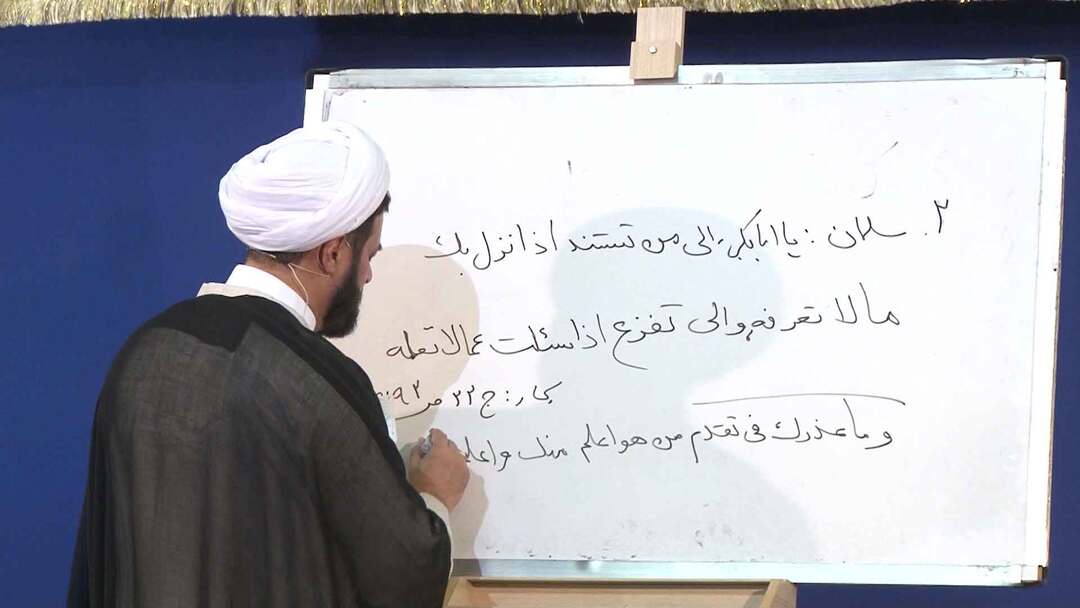 ۲. سلمان : یا ابابکر الی من تستند اذا نزل بک
مالا تعرفه والی تفزع اذا سئلت عمالا تعلمه
بحار : ج ۲۲ ص
وما عذرک فی تقدم من هو اعلم منک و